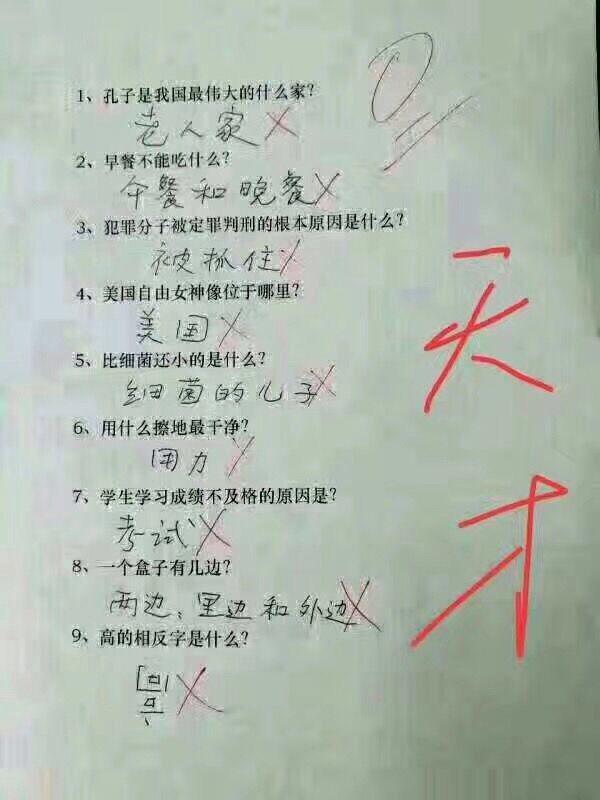 1、孔子是我国最伟大的什么家?
老人家
2、早餐不能吃什么?
午餐和晚餐
3、犯罪分子被定罪判刑的根本原因是什么?
被抓住
4、美国自由女神像位于哪里?
美国
5、比细菌还小的是什么?
细菌的儿子
6、用什么擦地最干净?
用力
7、学生学习成绩不及格的原因是?
考试
8、一个盒子有几边?
两边,里边和外边
9、高的相反字是什么?
0
天
才